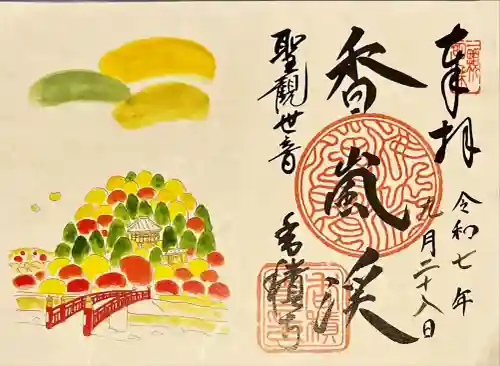 奉拝
令和七年
九月二十八日
香嵐渓
聖觀世音
香積寺